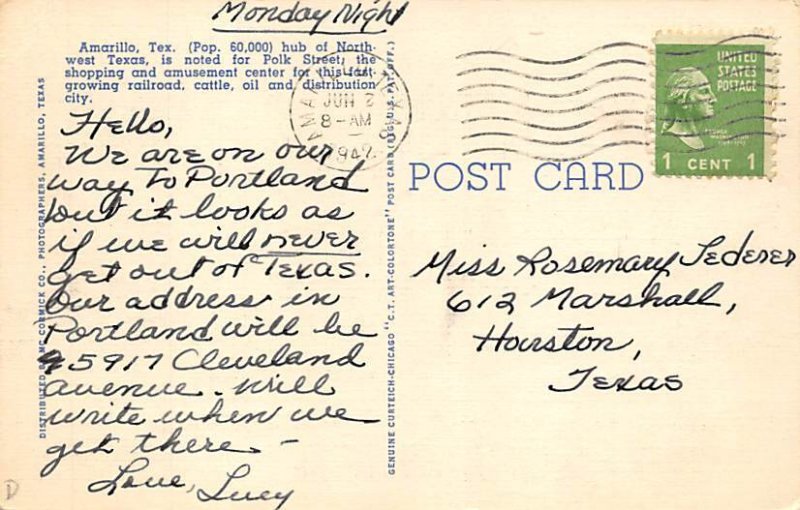 Monday Night
Amarillo, Tex. (Pop. 60,000) hub of North-
west Texas, is noted for Polk Street, the
shopping and amusement center for this fast-
growing railroad, cattle, oil and distribution
city.
Hello,
We are on our
way to Portland
but it looks as
if we will never
get out of Texas.
Our address in
Portland will be
5917 Cleveland
avenue. Will
write when we
get there –
Love, Lucy
DISTRIBUTED BY MC CORMICK CO., PHOTOGRAPHERS, AMARILLO, TEXAS
GENUINE CURTEICH-CHICAGO "C.T. ART-COLORTONE" POST CARD (REG. U.S. PAT. OFF.)
JUN 2
8-AM
1942
UNITED
STATES
POSTAGE
1 CENT 1
POST CARD
Miss Rosemary Lederer
612 Marshall,
Houston,
Texas
D